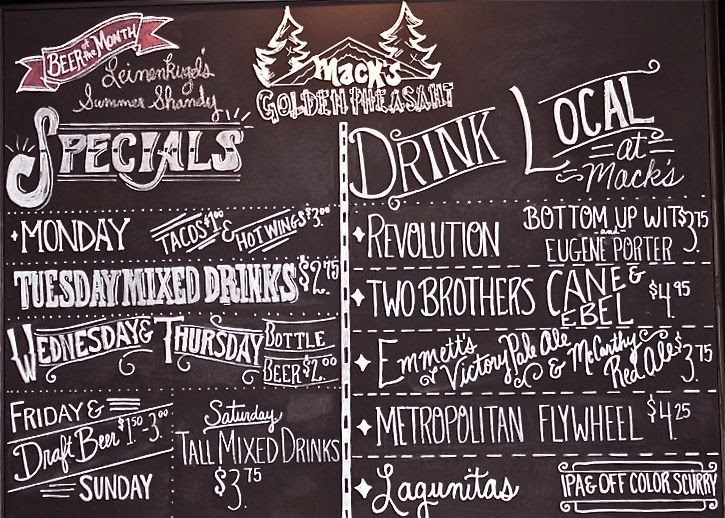 BEER of the MONTH
Leinenkugel's
Summer Shandy
Mack's
GOLDEN PHEASANT
SPECIALS
MONDAY TACOS $1.00 & HOT WINGS $3.00
TUESDAY MIXED DRINKS $2.75
WEDNESDAY & THURSDAY BOTTLE BEER $2.00
FRIDAY &
Draft Beer $1.50-3.00
SUNDAY
Saturday
TALL MIXED DRINKS
$3.75
DRINK LOCAL
at
Mack's
REVOLUTION BOTTOM UP WIT and EUGENE PORTER $3.75
TWO BROTHERS CANE & EBEL $4.95
Emmett's Victory Pale Ale & McCarthy Red Ale $3.75
METROPOLITAN FLYWHEEL $4.25
Lagunitas IPA & OFF COLOR SCURRY